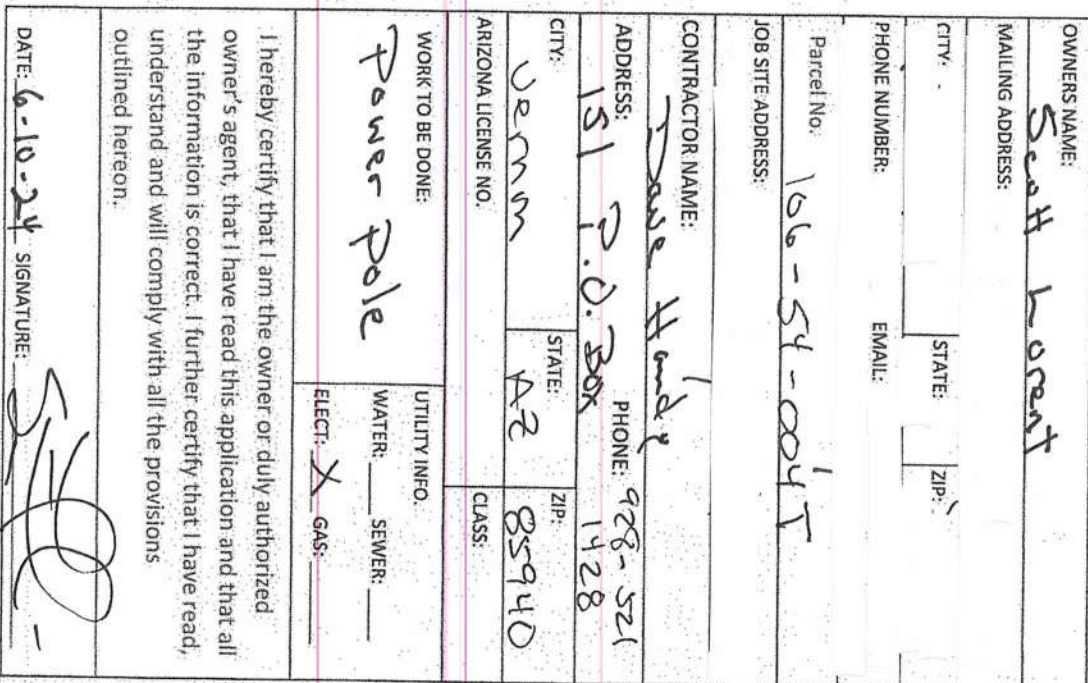 OWNERS NAME:
Scott Lorent
MAILING ADDRESS:
CITY: STATE: ZIP:
PHONE NUMBER: EMAIL:
Parcel No: 106-54-004T
JOB SITE ADDRESS:
CONTRACTOR NAME:
Dave Handy
ADDRESS: PHONE: 928-521
151 P.O. Box 1428
CITY: STATE: ZIP:
Vernon AZ 85940
ARIZONA LICENSE NO. CLASS:
WORK TO BE DONE: UTILITY INFO.
Power Pole WATER: SEWER:
ELECT: X GAS:
I hereby certify that I am the owner or duly authorized
owner's agent, that I have read this application and that all
the information is correct. I further certify that I have read,
understand and will comply with all the provisions
outlined hereon.
DATE: 6-10-24 SIGNATURE: